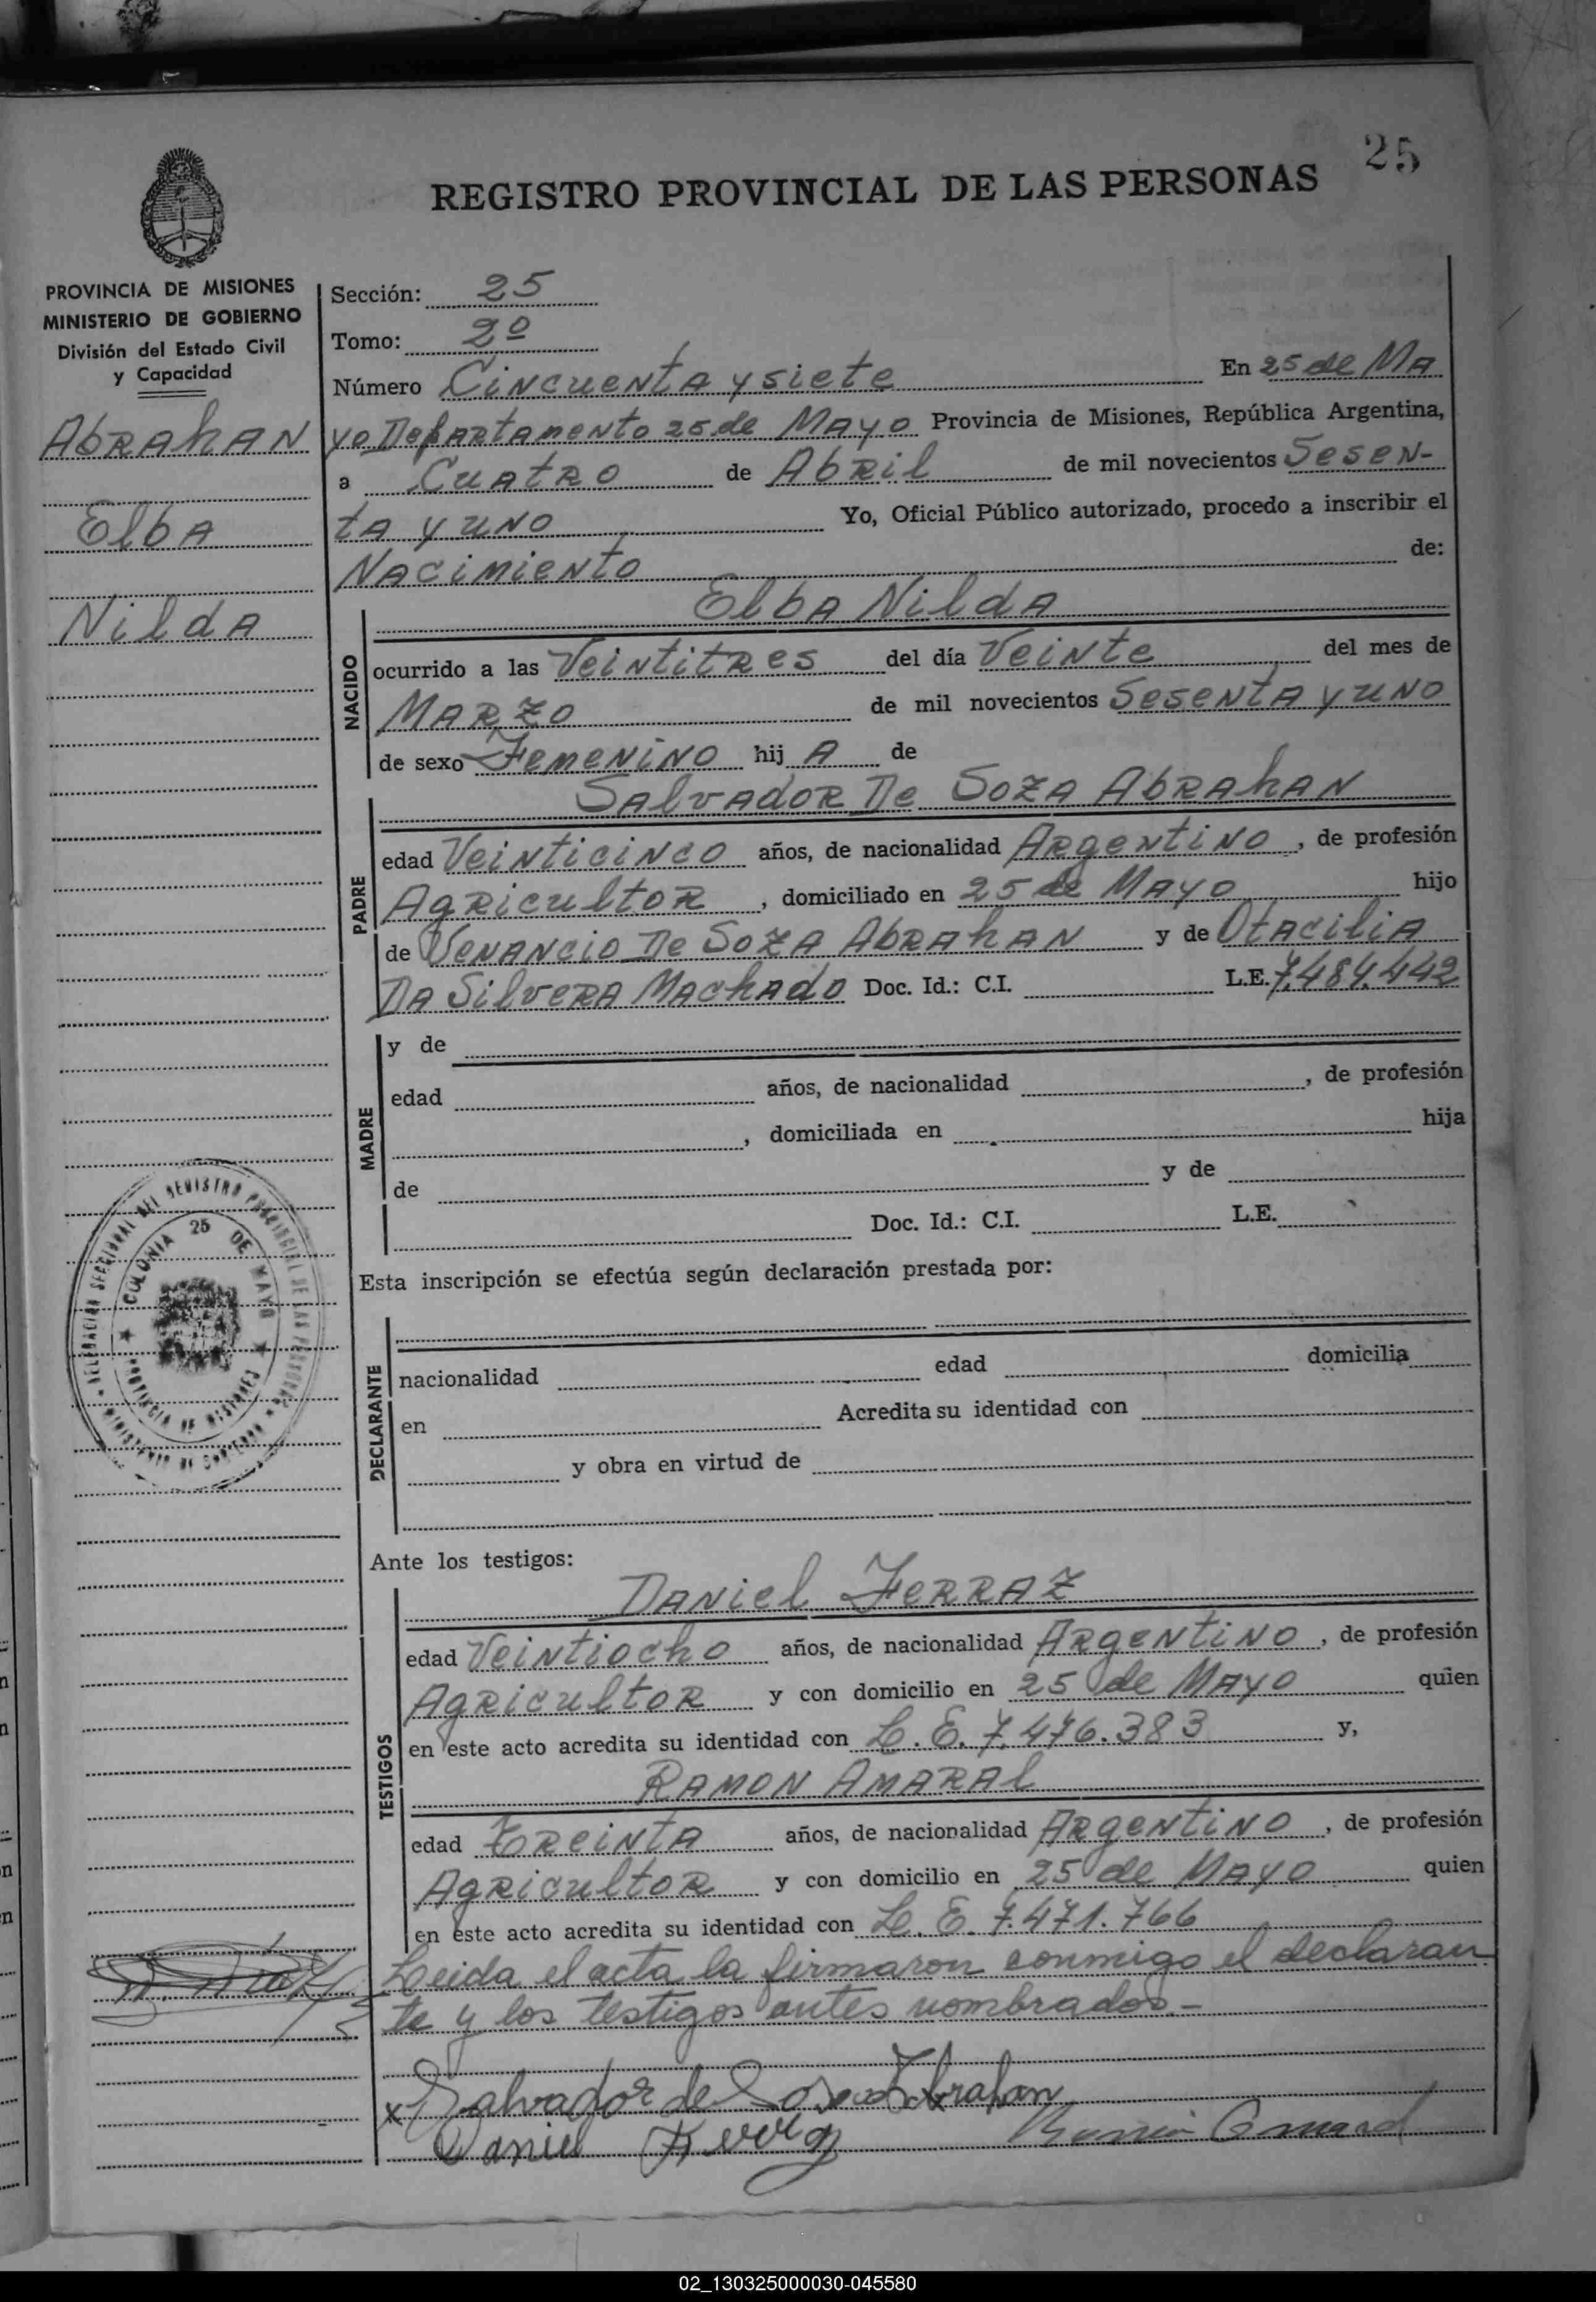 25
REGISTRO PROVINCIAL DE LAS PERSONAS
PROVINCIA DE MISIONES
MINISTERIO DE GOBIERNO
División del Estado Civil
y Capacidad
Abrahan
Elba
Nilda
Sección: 25
Tomo: 2º
Número Cincuenta y siete En 25 de Ma
yo Departamento 25 de Mayo Provincia de Misiones, República Argentina,
a Cuatro de Abril de mil novecientos Sesen-
ta y uno Yo, Oficial Público autorizado, procedo a inscribir el
Nacimiento de:
Elba Nilda
NACIDO
ocurrido a las Veintitres del día Veinte del mes de
Marzo de mil novecientos Sesenta y uno
de sexo Femenino hij A de
Salvador De Soza Abrahan
PADRE
edad Veinticinco años, de nacionalidad Argentino, de profesión
Agricultor, domiciliado en 25 de Mayo hijo
de Venancio De Soza Abrahan y de Otacilia
Da Silvera Machado Doc. Id.: C.I. L.E. 7.484.442
MADRE
y de
edad años, de nacionalidad , de profesión
, domiciliada en hija
de y de
Doc. Id.: C.I. L.E.
DELEGACION SECCIONAL DEL REGISTRO PROVINCIAL DE LAS PERSONAS
COLONIA 25 DE MAYO
PROVINCIA DE MISIONES
MINISTERIO DE GOBIERNO
Esta inscripción se efectúa según declaración prestada por:
DECLARANTE
nacionalidad edad domicilia
en Acredita su identidad con
y obra en virtud de
Ante los testigos:
Daniel Ferraz
TESTIGOS
edad Veintiocho años, de nacionalidad Argentino, de profesión
Agricultor y con domicilio en 25 de Mayo quien
en este acto acredita su identidad con L. E. 7.476.383 y,
Ramon Amaral
edad Treinta años, de nacionalidad Argentino, de profesión
Agricultor y con domicilio en 25 de Mayo quien
en este acto acredita su identidad con L. E. 7.471.766
Leida el acta la firmaron conmigo el declaran
te y los testigos antes nombrados.-
x Salvador de Soza Abrahan
Daniel
02_130325000030-045580